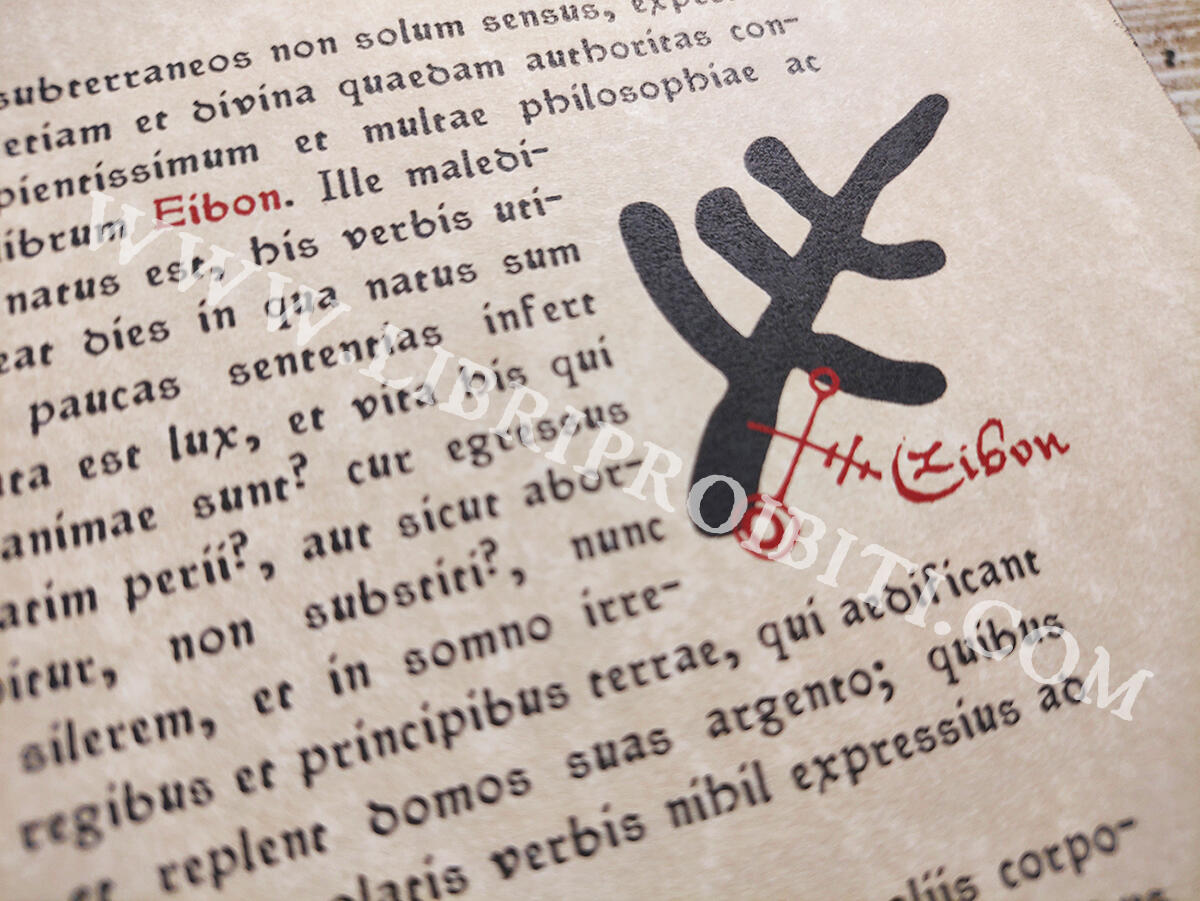 subterraneos non solum sensus,
etiam et divina quaedam authoritas con-
pientissimum et multae philosophiae ac
librum Eibon. Ille maledi-
natus est, his verbis uti-
eat dies in qua natus sum
paucas sententias infert
ta est lux, et vita his qui
animae sunt? cur egressus
atim perii?, aut sicut abor-
itur, non substiti?, nunc
silerem, et in somno irre-
regibus et principibus terrae, qui aedificant
et replent domos suas argento; quibus
latis verbis nihil expressius ac
liis corpo-
Eibon
WWW.LIBRIPROIBITI.COM